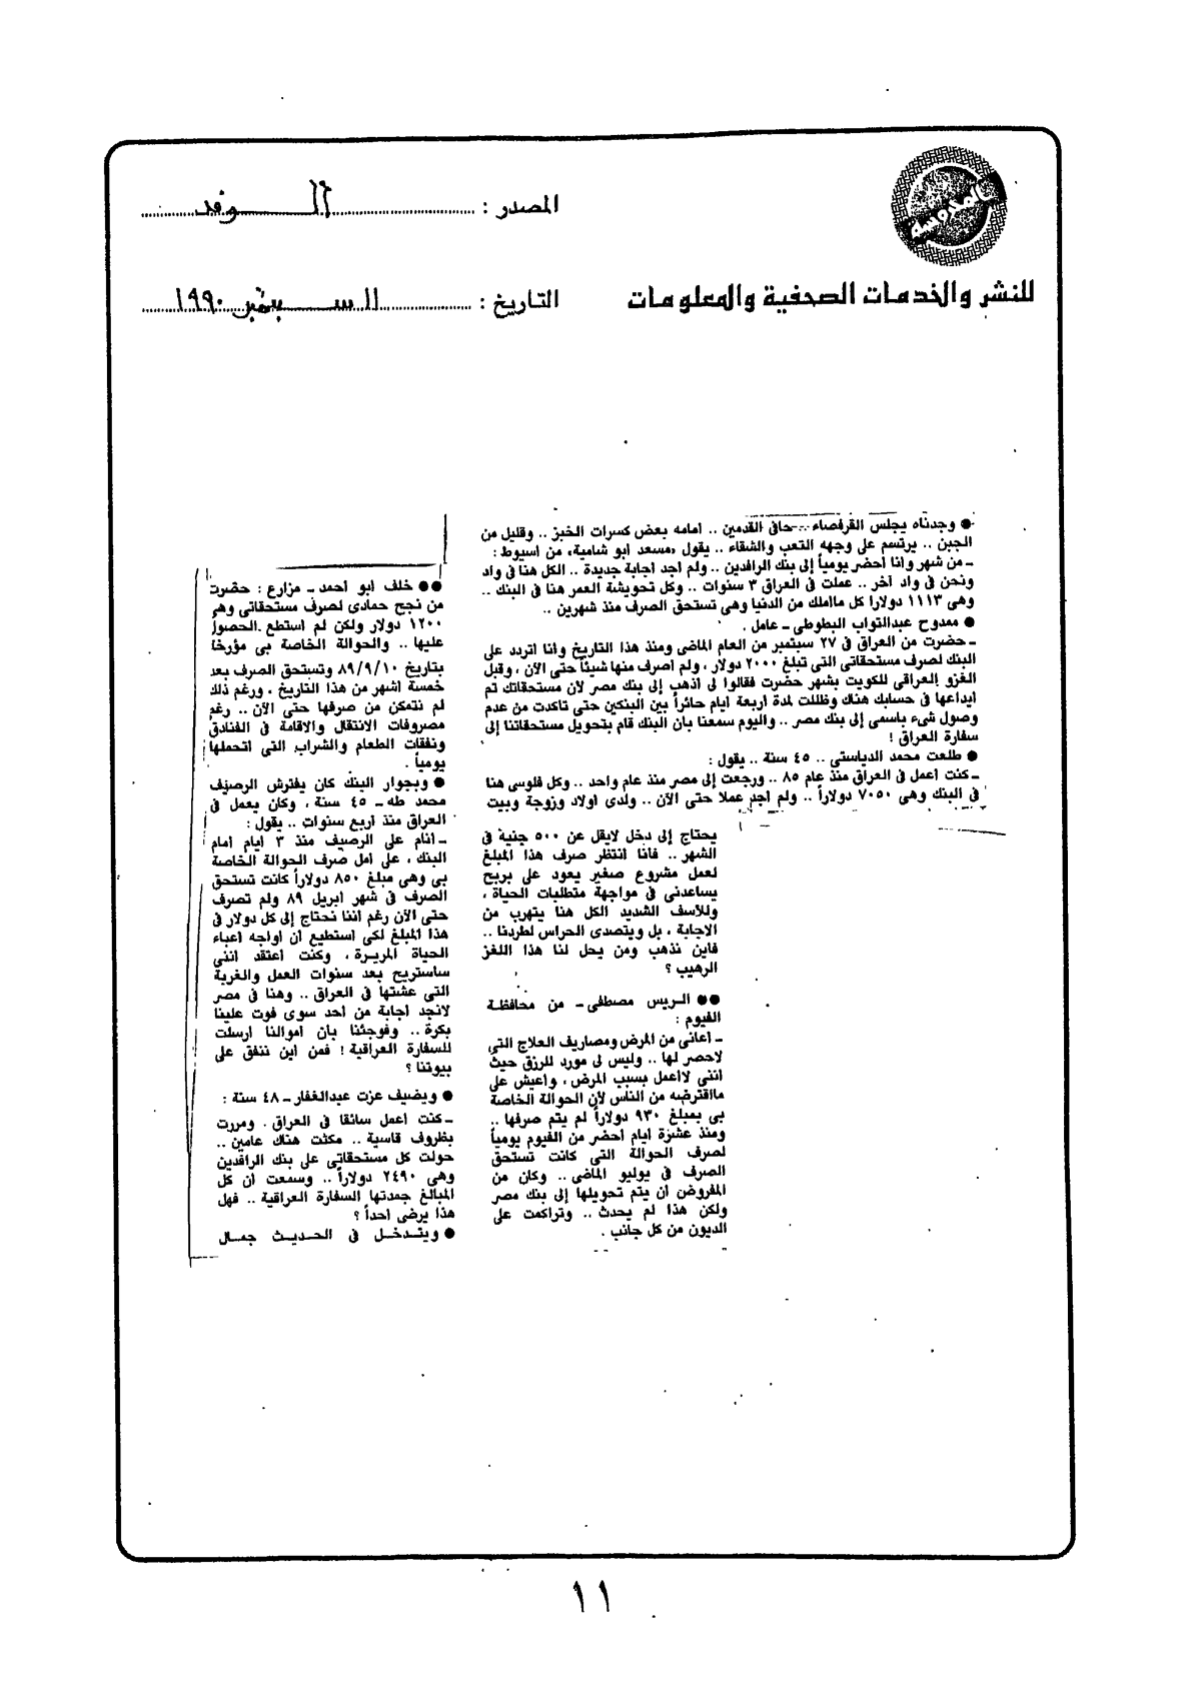 المدوسة
المصدر : الوفد
للنشر والخدمات الصحفية والمعلومات
التاريخ : ١١ سبتمبر ١٩٩٠
● وجدناه يجلس القرفصاء .. حافى القدمين .. أمامه بعض كسرات الخبز .. وقليل من
الجبن .. يرتسم على وجهه التعب والشقاء .. يقول «مسعد أبو شامية» من أسيوط :
ـ من شهر وأنا أحضر يومياً إلى بنك الرافدين .. ولم أجد أجابة جديدة .. الكل هنا فى واد
ونحن فى واد آخر .. عملت فى العراق ٣ سنوات .. وكل تحويشة العمر هنا فى البنك ..
وهى ١١١٣ دولارا كل ماأملك من الدنيا وهى تستحق الصرف منذ شهرين ..
● ممدوح عبدالتواب البطوطى ـ عامل .
ـ حضرت من العراق فى ٢٧ سبتمبر من العام الماضى ومنذ هذا التاريخ وأنا أتردد على
البنك لصرف مستحقاتى التى تبلغ ٢٠٠٠ دولار ، ولم أصرف منها شيئاً حتى الآن ، وقبل
الغزو العراقى للكويت بشهر حضرت فقالوا لى أذهب إلى بنك مصر لأن مستحقاتك تم
ايداعها فى حسابك هناك وظللت لمدة أربعة أيام حائراً بين البنكين حتى تأكدت من عدم
وصول شىء باسمى إلى بنك مصر .. واليوم سمعنا بأن البنك قام بتحويل مستحقاتنا إلى
سفارة العراق !
● طلعت محمد الدياستى .. ٤٥ سنة .. يقول :
ـ كنت أعمل فى العراق منذ عام ٨٥ .. ورجعت إلى مصر منذ عام واحد .. وكل فلوسى هنا
فى البنك وهى ٧٠٥٠ دولاراً .. ولم أجد عملا حتى الآن .. ولدى أولاد وزوجة وبيت
يحتاج إلى دخل لايقل عن ٥٠٠ جنية فى
الشهر .. فأنا أنتظر صرف هذا المبلغ
لعمل مشروع صغير يعود على بربح
يساعدنى فى مواجهة متطلبات الحياة ،
وللأسف الشديد الكل هنا يتهرب من
الاجابة ، بل ويتصدى الحراس لطردنا ..
فأين نذهب ومن يحل لنا هذا اللغز
الرهيب ؟
●● الريس مصطفى ـ من محافظة
الفيوم :
ـ أعانى من المرض ومصاريف العلاج التى
لاحصر لها .. وليس لى مورد للرزق حيث
أننى لاأعمل بسبب المرض ، وأعيش على
ماأقترضه من الناس لأن الحوالة الخاصة
بى بمبلغ ٩٣٠ دولاراً لم يتم صرفها ..
ومنذ عشرة أيام أحضر من الفيوم يومياً
لصرف الحوالة التى كانت تستحق
الصرف فى يوليو الماضى .. وكان من
المفروض أن يتم تحويلها إلى بنك مصر
ولكن هذا لم يحدث .. وتراكمت على
الديون من كل جانب .
●● خلف أبو أحمد ـ مزارع : حضرت
من نجع حمادى لصرف مستحقاتى وهى
١٢٠٠ دولار ولكن لم أستطع الحصول
عليها .. والحوالة الخاصة بى مؤرخا
بتاريخ ٨٩/٩/١٠ وتستحق الصرف بعد
خمسة أشهر من هذا التاريخ ، ورغم ذلك
لم نتمكن من صرفها حتى الآن .. رغم
مصروفات الانتقال والاقامة فى الفنادق
ونفقات الطعام والشراب التى أتحملها
يومياً .
● وبجوار البنك كان يفترش الرصيف
محمد طه ـ ٤٥ سنة ، وكان يعمل فى
العراق منذ أربع سنوات .. يقول :
ـ أنام على الرصيف منذ ٣ أيام أمام
البنك ، على أمل صرف الحوالة الخاصة
بى وهى مبلغ ٨٥٠ دولاراً كانت تستحق
الصرف فى شهر أبريل ٨٩ ولم تصرف
حتى الآن رغم أننا نحتاج إلى كل دولار فى
هذا المبلغ لكى أستطيع أن أواجه أعباء
الحياة المريرة ، وكنت أعتقد أننى
سأستريح بعد سنوات العمل والغربة
التى عشتها فى العراق .. وهنا فى مصر
لانجد أجابة من أحد سوى فوت علينا
بكرة .. وفوجئنا بأن أموالنا أرسلت
للسفارة العراقية ! فمن أين ننفق على
بيوتنا ؟
● ويضيف عزت عبدالغفار ـ ٤٨ سنة :
ـ كنت أعمل سائقا فى العراق . ومررت
بظروف قاسية .. مكثت هناك عامين ..
حولت كل مستحقاتى على بنك الرافدين
وهى ٢٤٩٠ دولاراً .. وسمعت أن كل
المبالغ جمدتها السفارة العراقية .. فهل
هذا يرضى أحداً ؟
● ويتدخل فى الحديث جمال
١١